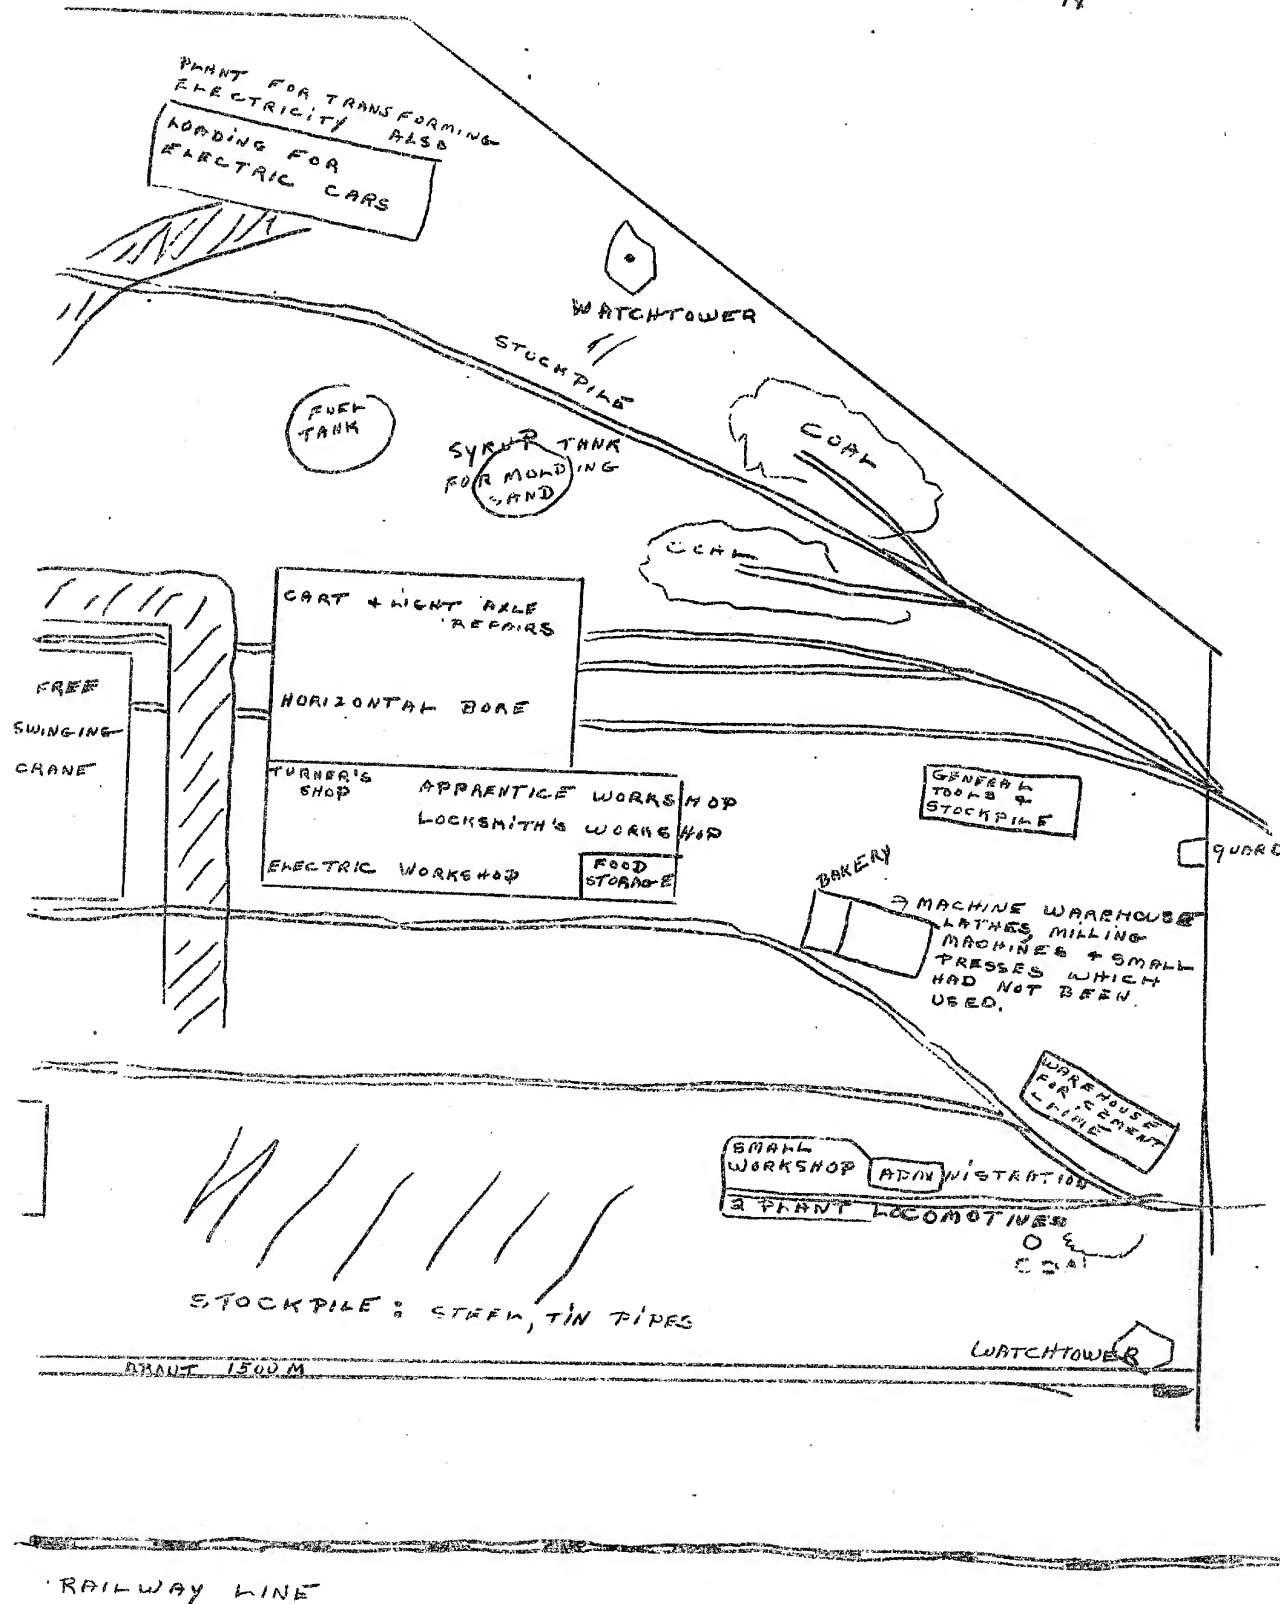 PLANT FOR TRANSFORMING
ELECTRICITY ALSO
LOADING FOR
ELECTRIC CARS
WATCHTOWER
STOCKPILE
FUEL
TANK
SYRUP TANK
FOR MOLDING
SAND
COAL
COAL
CART + LIGHT AXLE
REPAIRS
HORIZONTAL BORE
FREE
SWINGING
CRANE
TURNER'S
SHOP
APPRENTICE WORKSHOP
LOCKSMITH'S WORKSHOP
ELECTRIC WORKSHOP
FOOD
STORAGE
GENERAL
TOOLS +
STOCKPILE
GUARD
BAKERY
MACHINE WAREHOUSE
LATHES, MILLING
MACHINES + SMALL
PRESSES WHICH
HAD NOT BEEN
USED.
WAREHOUSE
FOR CEMENT
LIME
SMALL
WORKSHOP
ADMINISTRATION
2 PLANT LOCOMOTIVES
COAL
STOCKPILE: STEEL, TIN PIPES
WATCHTOWER
ABOUT 1500 M
RAILWAY LINE